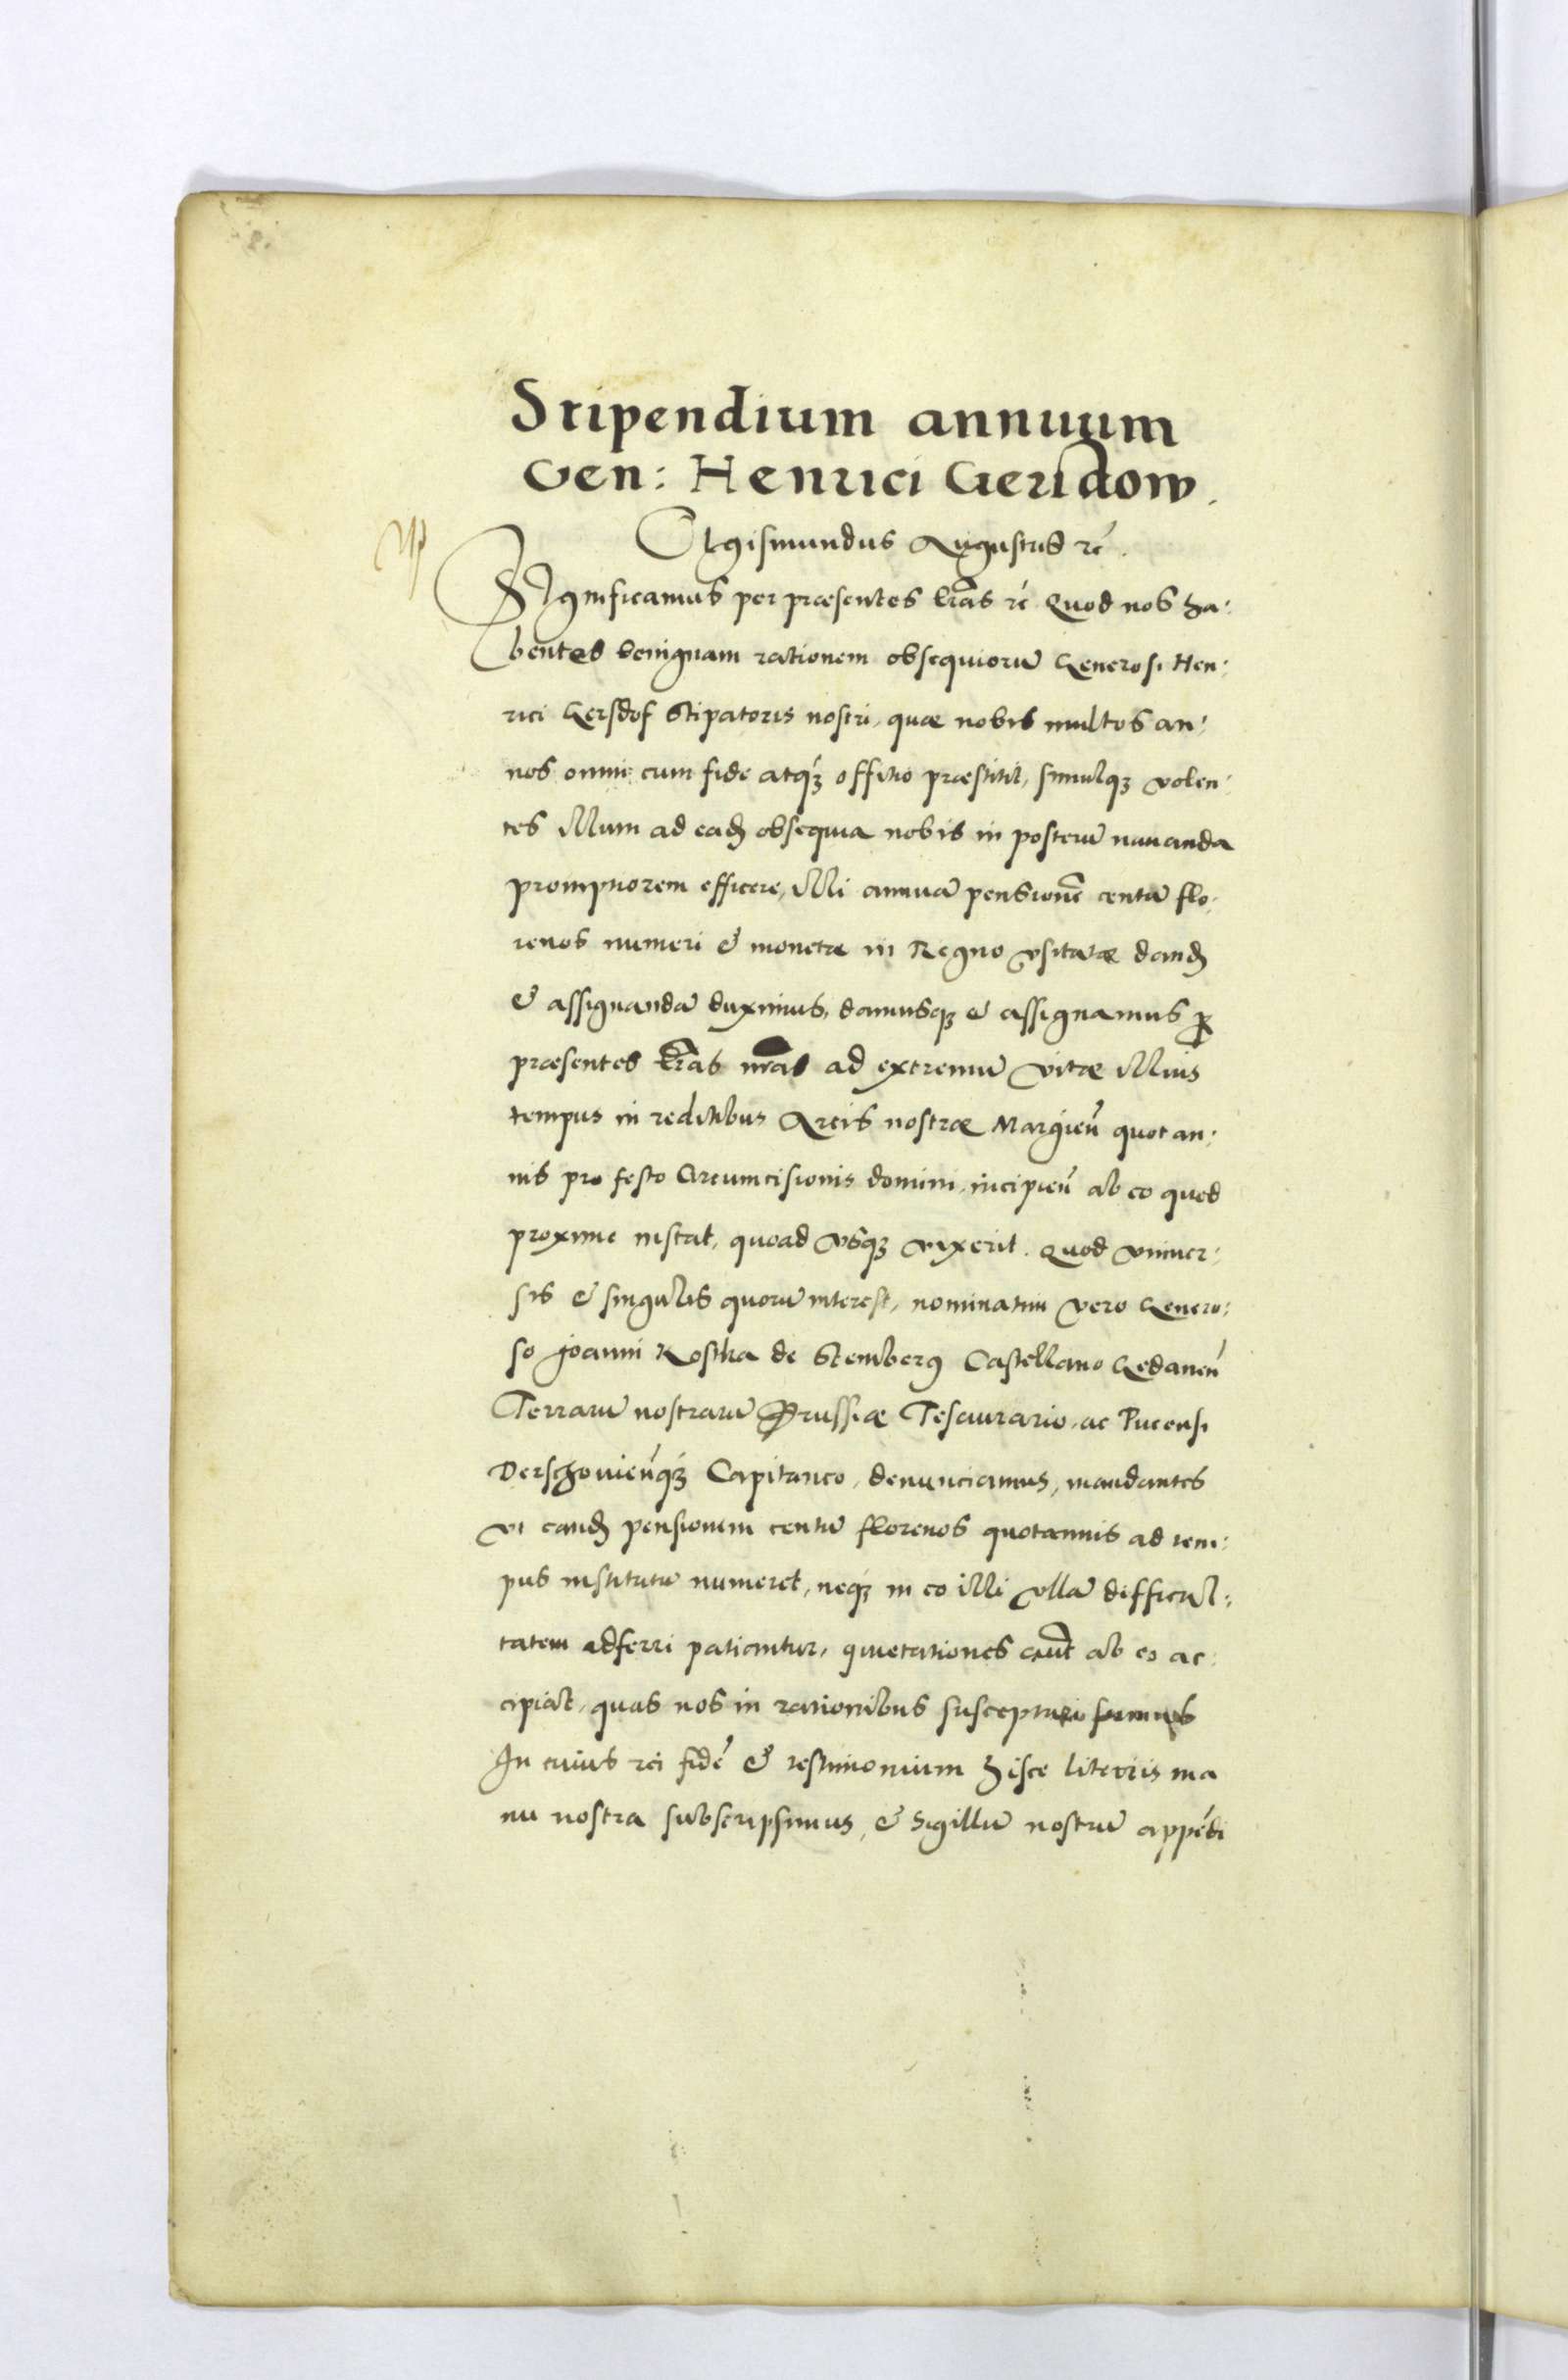 Stipendium annuum
Gen: Henrici Geridow.
SIgismundus Augustus rc̄.
SIgnificamus per præsentes lr̄as rc̄ Quod nos ha:
bentes benignam rationem obsequiorū Generosi Hen:
rici Gersdof Stipatoris nostri, quae nobis multos an:
nos omni cum fide atqꝫ offitio præstitit, simulqꝫ volen:
tes illum ad eadꝫ obsequia nobis in posterū navanda
promptiorem efficere, illi annuā pensionē centū flo:
renos numeri & monetæ in Regno usitatæ dandꝫ
& assignandā duximus, damusqꝫ & assignamus ꝑ
præsentes lr̄as nr̄as ad extremū vitæ illius
tempus in reditibus Arcis nostræ Margieñ quotan:
nis pro festo Circumcisionis domini, incipieñ ab eo quod
proxime instat, quoad usqꝫ vixerit. Quod univer:
sis & singulis quorū interest, nominatim vero Genero:
so Joanni Kostka de Stemberg Castellano Gedaneñ
Terrarū nostrarū Prussiæ Tesaurario, ac Pucensi
Derschovieñqꝫ Capitaneo, denunciamus, mandantes
ut eandꝫ pensionem centū florenos quotannis ad tem:
pus institutū numeret, neqꝫ in eo illi ullā difficul:
tatem adferri patiantur, quietationes aut̄ ab eo ac:
cipiāt, quas nos in rationibus suscepturi sumus
In cuius rei fidē & testimonium hisce literis ma
nu nostra subscripsimus, & Sigillū nostrū appēdi